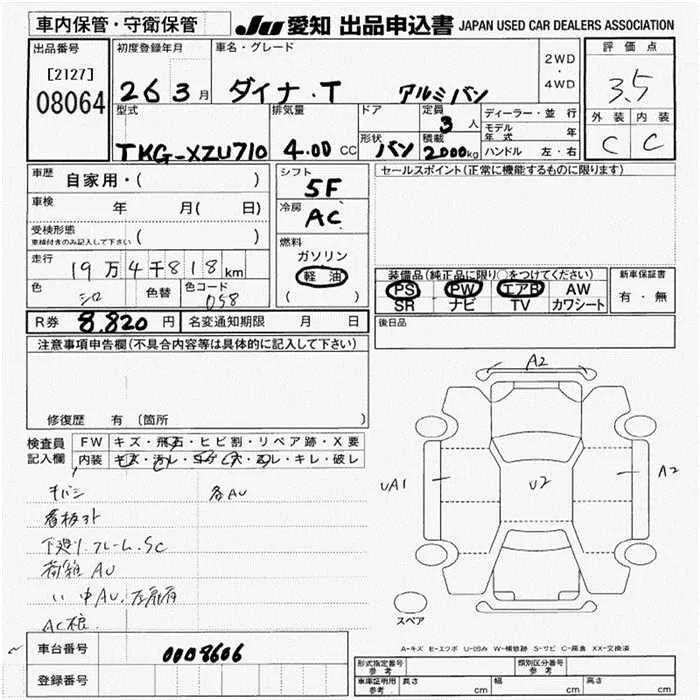 車内保管・守衛保管 JU 愛知 出品申込書 JAPAN USED CAR DEALERS ASSOCIATION
出品番号 初度登録年月 車名・グレード 評価点
[2127] 2WD
08064 26 3月 ダイナ・T アルミバン ・ 3.5
4WD
型式 排気量 ドア 定員 3人 ディーラー・並行 外装 内装
モデル年式 年
TKG-XZU710 4.00 CC 形状 バン 積載 2000kg ハンドル 左・右 C C
車歴 自家用・( ) シフト 5F セールスポイント(正常に機能するものに限ります)
車検 年 月( 日) 冷房 AC
受検形態
車検付きのみ記入して下さい ( ) 燃料
ガソリン
走行 19万4千818km 軽油 装備品(純正品に限り○をつけてください) 新車保証書
色 シロ 色替 色コード 058 ( ) PS PW エアB AW 有・無
SR ナビ TV カワシート
R券 8,820円 名変通知期限 月 日 後日品
注意事項申告欄(不具合内容等は具体的に記入して下さい)
修復歴 有 (箇所 )
検査員 FW キズ・飛石・ヒビ割・リペア跡・X要
記入欄 内装 キズ・汚レ・コゲ・穴・スレ・キレ・破レ
キバシ 各AU
看板ヌト
下廻り、フレーム、SC
荷箱 AU
い 中AU、
AC
A2
UA1
U2
A2
スペア
A-キズ E-エクボ U-凹み W-補修跡 S-サビ C-腐食 XX-交換済
車台番号 0008606
登録番号
形式指定番号 参考 類別区分番号 参考
車庫証明用 参考 長さ cm 幅 cm 高さ cm